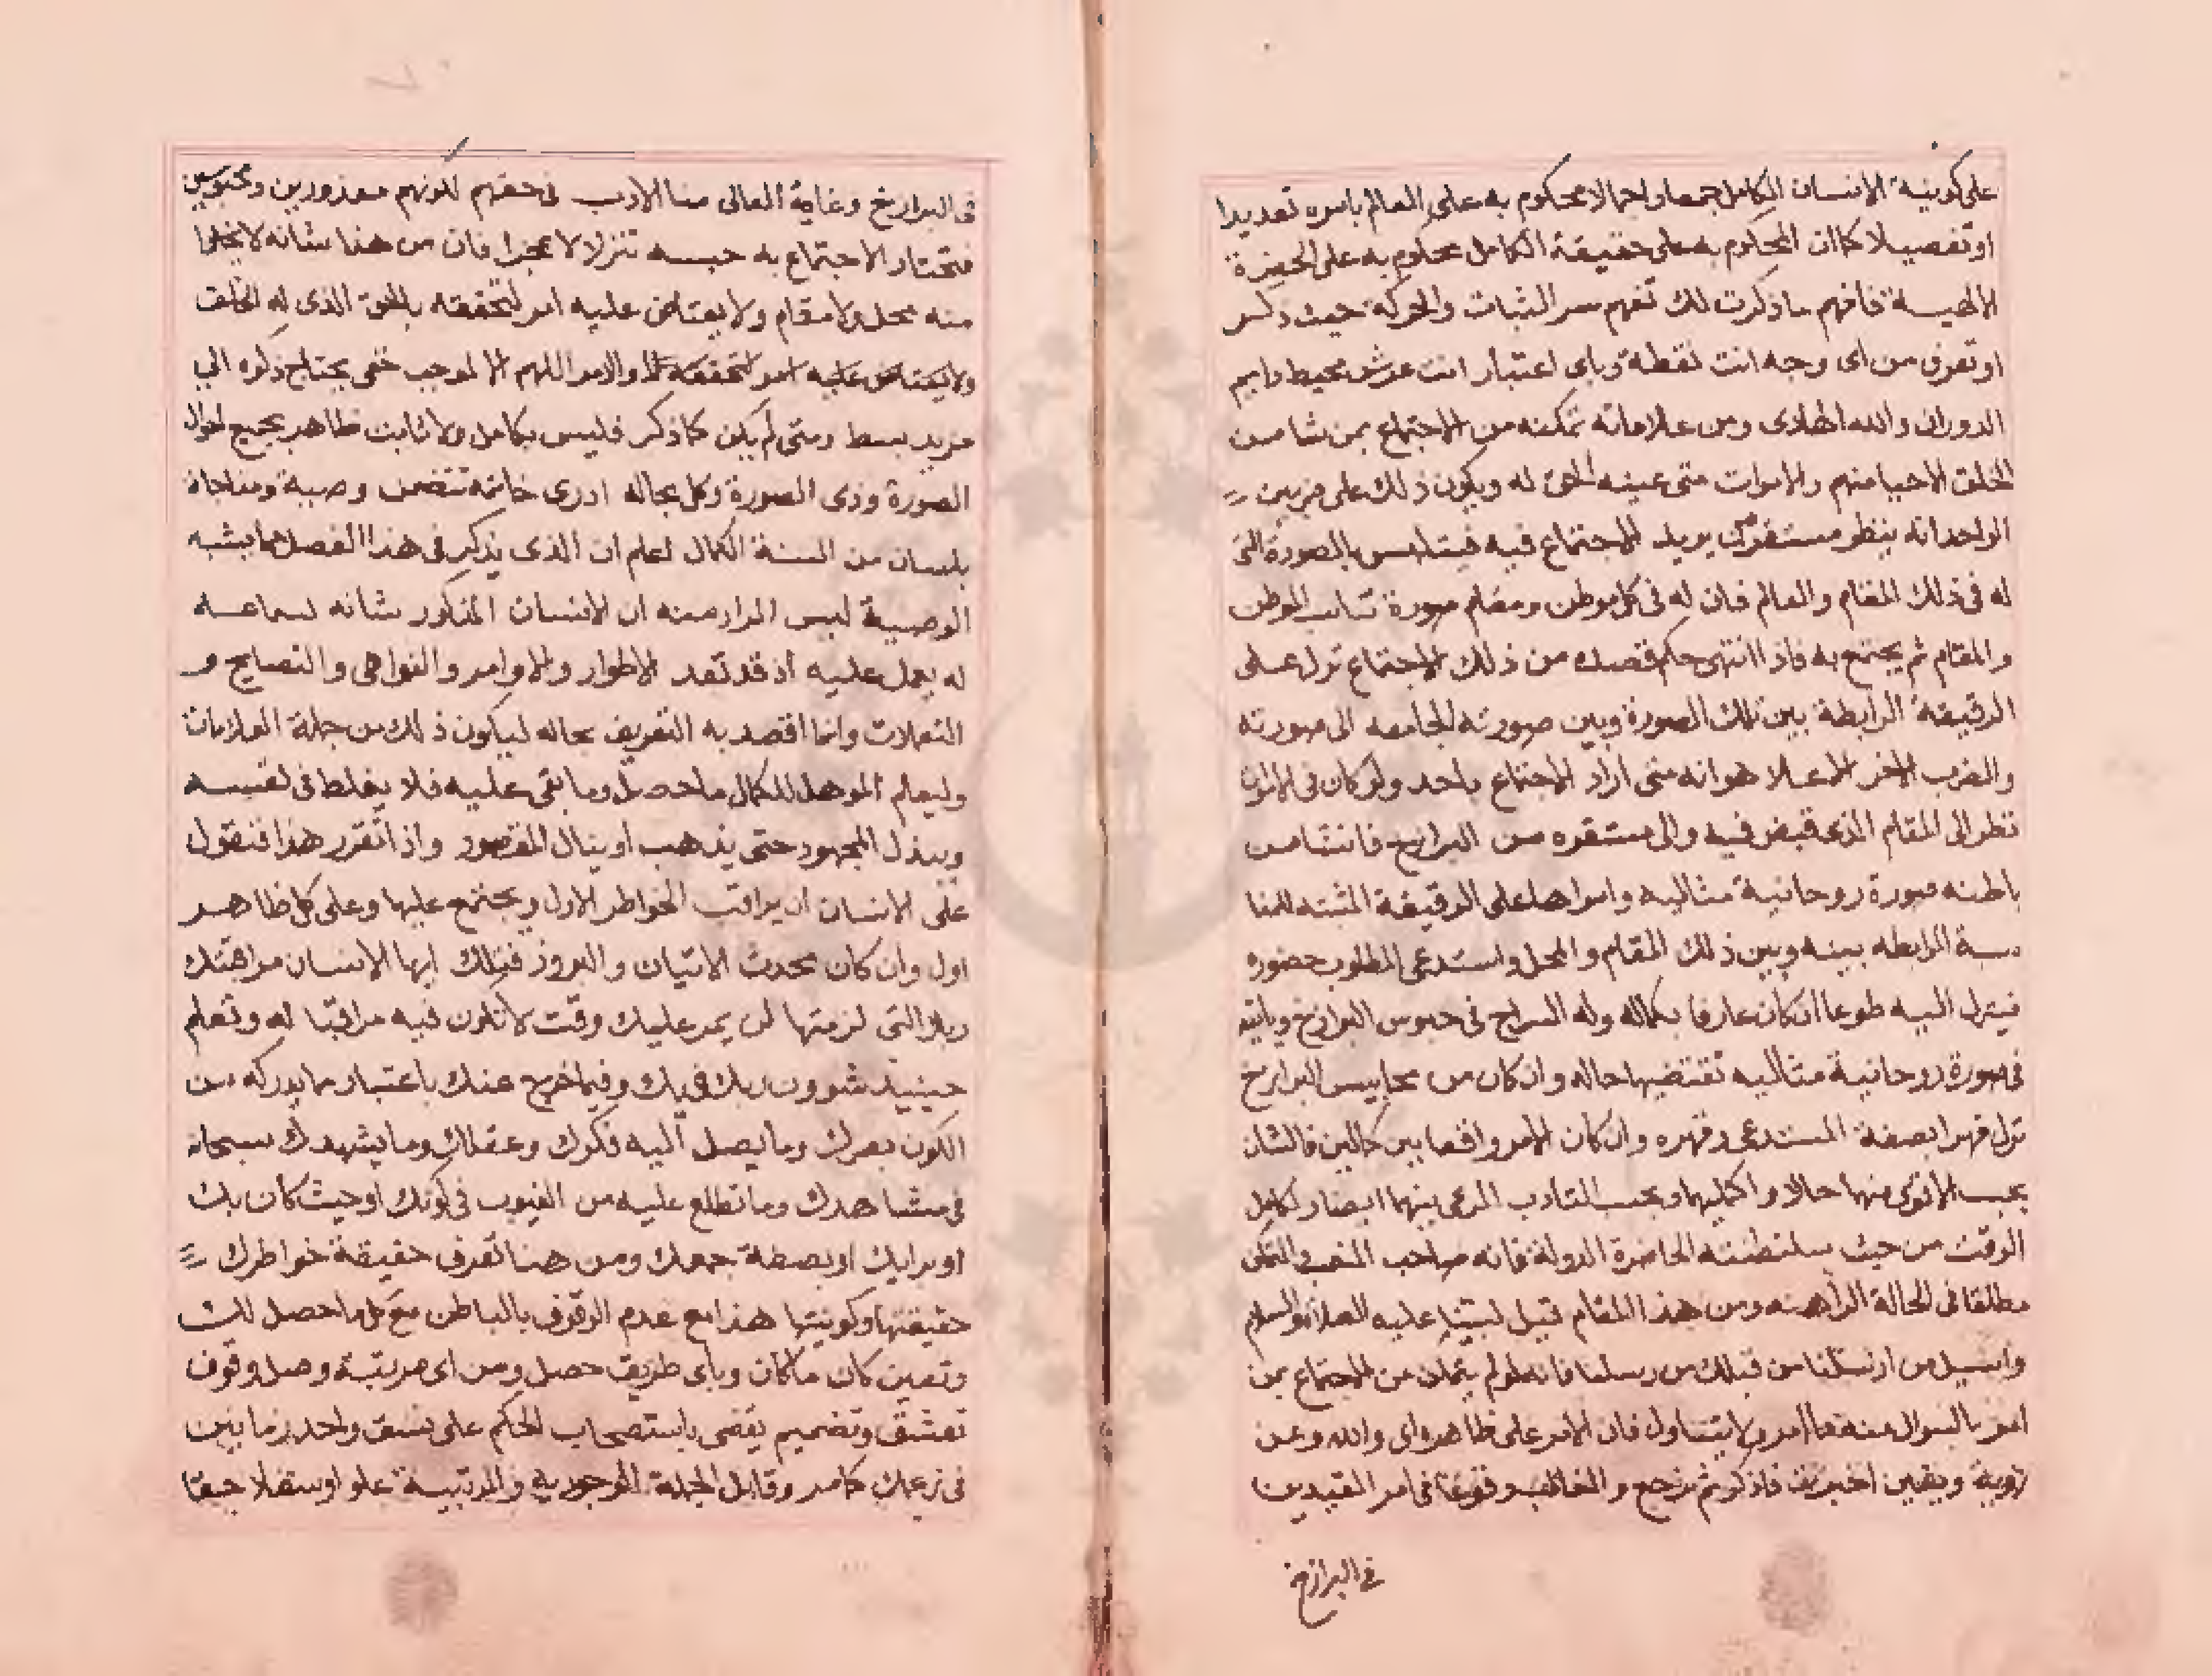 على كونية الانسان الكامل جمعا واجمالا محكوم به على العالم باسره تعديدا
او تفصيلا كما ان المحكوم به على حقيقة الكامل محكوم به على الحضرة
الالهية فافهم ما ذكرت لك تفهم سر الثبات والحركة حيث ذكر
او تعرف من اى وجه انت نقطة وباى اعتبار انت عرش محيط دايم
الدوران والله الهادى ومن علاماته تمكنه من الاجتماع بمن شا من
الخلق الاحيا منهم والاموات متى عينه الحق له ويكون ذلك على ضربين
الواحد انه ينظر مستقر من يريد الاجتماع فيه فيتلبس بالصورة التى
له فى ذلك المقام والعالم فان له فى كل موطن ومقام صورة تناسب الموطن
والمقام ثم يجتمع به فاذا انتهى حكم قصده من ذلك الاجتماع نزل على
الرقيقة الرابطة بين تلك الصورة وبين صورته الجامعه الى صورته
والضرب الاخر الاعلا هو انه متى اراد الاجتماع باحد ولو كان فى الاموات
نظر الى المقام الذى قبض فيه والى مستقره من البرازخ فانشا من
باطنه صورة روحانية مثاليه وامرها على الرقيقة المثبته للمنا
سبة الرابطه بينه وبين ذلك المقام والمحل واستدعى المطلوب حضوره
فينزل اليه طوعا ان كان عارفا بكماله وله السراح فى حبوس البرازخ وياتيه
فى صورة روحانية مثاليه تقتضيها حاله وان كان من محابيس البرازخ
نزل قهرا بصفة المستدعى وقهره وان كان الامر واقعا بين كاملين فالشان
بحسب الاقوى منهما حالا واكمليهما وبحسب التادب المرعى بينهما ايضا ولكامل
الوقت من حيث سلطنته الحاضرة الدولة فانه صاحب المنصب والتمكن
مطلقا فى الحالة الراهنه ومن هذا المقام قيل لنبينا عليه الصلاة والسلام
واسيل من ارسلنا من قبلك من رسلنا فانه لو لم يتمكن من الاجتماع بمن
امر بالسوال منه ما امر ولا يتناول فان الامر على ظاهره اى والله وعن
روية ويقين اخبرتك فاذكر ثم نرجع والغالب وقوعا فى امر المقيدين
فى البرازخ
فى البرازخ وغاية المعالى منا الادب فى حقهم لكونهم معذورين ومحبوسين
فتختار الاجتماع به حبسه تنزلا لا عجزا فان من هذا شانه لا يخلوا
منه محل ولا مقام ولا يعتاض عليه امر لتحققه بالحق الذى له الخلق
ولا يعتاض عليه امر لتحققه والامر اللهم الا لموجب خفى يحتاج ذكره الى
مزيد بسط ومتى لم يكن كما ذكر فليس بكامل ولا ثابت ظاهر بجميع احوال
الصورة وذى الصورة وكل بحاله ادرى خاتمه تتضمن وصية ومناجاة
بلسان من السنة الكمال اعلم ان الذى يذكر فى هذا الفصل مما يشبه
الوصية ليس المراد منه ان الانسان المذكور شانه لسماعه
له يعمل عليه اذ قد تعد الاطوار والاوامر والنواهى والنصايح و
التعملات وانما اقصد به التعريف بحاله ليكون ذلك من جملة العلامات
وليعلم الموهل للكمال ما حصل وما بقى عليه فلا يغلط فى نفسه
ويبذل المجهود حتى يذهب او ينال المقصود واذا تقرر هذا فنقول
على الانسان ان يراقب الخواطر الاول ويجتمع عليها وعلى كل ظاهر
اول وان كان محدث الاتيان والبروز فتلك ايها الانسان مراقبتك
ربك التى لزمتها لن يمر عليك وقت لا تكون فيه مراقبا له وتعلم
حينيذ شوون ربك فيك وفيما خرج عنك باعتبار ما يدركه من
الكون بصرك وما يصل اليه فكرك وعقلك وما يشهدك سبحانه
فى مشاهدك وما تطلع عليه من الغيوب فى كونك او حيث كان بك
او برايك او بصطة جمعك ومن هنا تعرف حقيقة خواطرك
حقيقتها وكونيتها هذا مع عدم الوقوف بالباطن مع كل ما حصل لك
وتعين كان ما كان وباى طريق حصل ومن اى مرتبة وصل وقوف
تعشق وتصميم يقضى باستصحاب الحكم على نسق واحد زمانين
فى زعمك كما مر وقابل الجملة الوجوديه والمرتبية علو او سفلا حقا